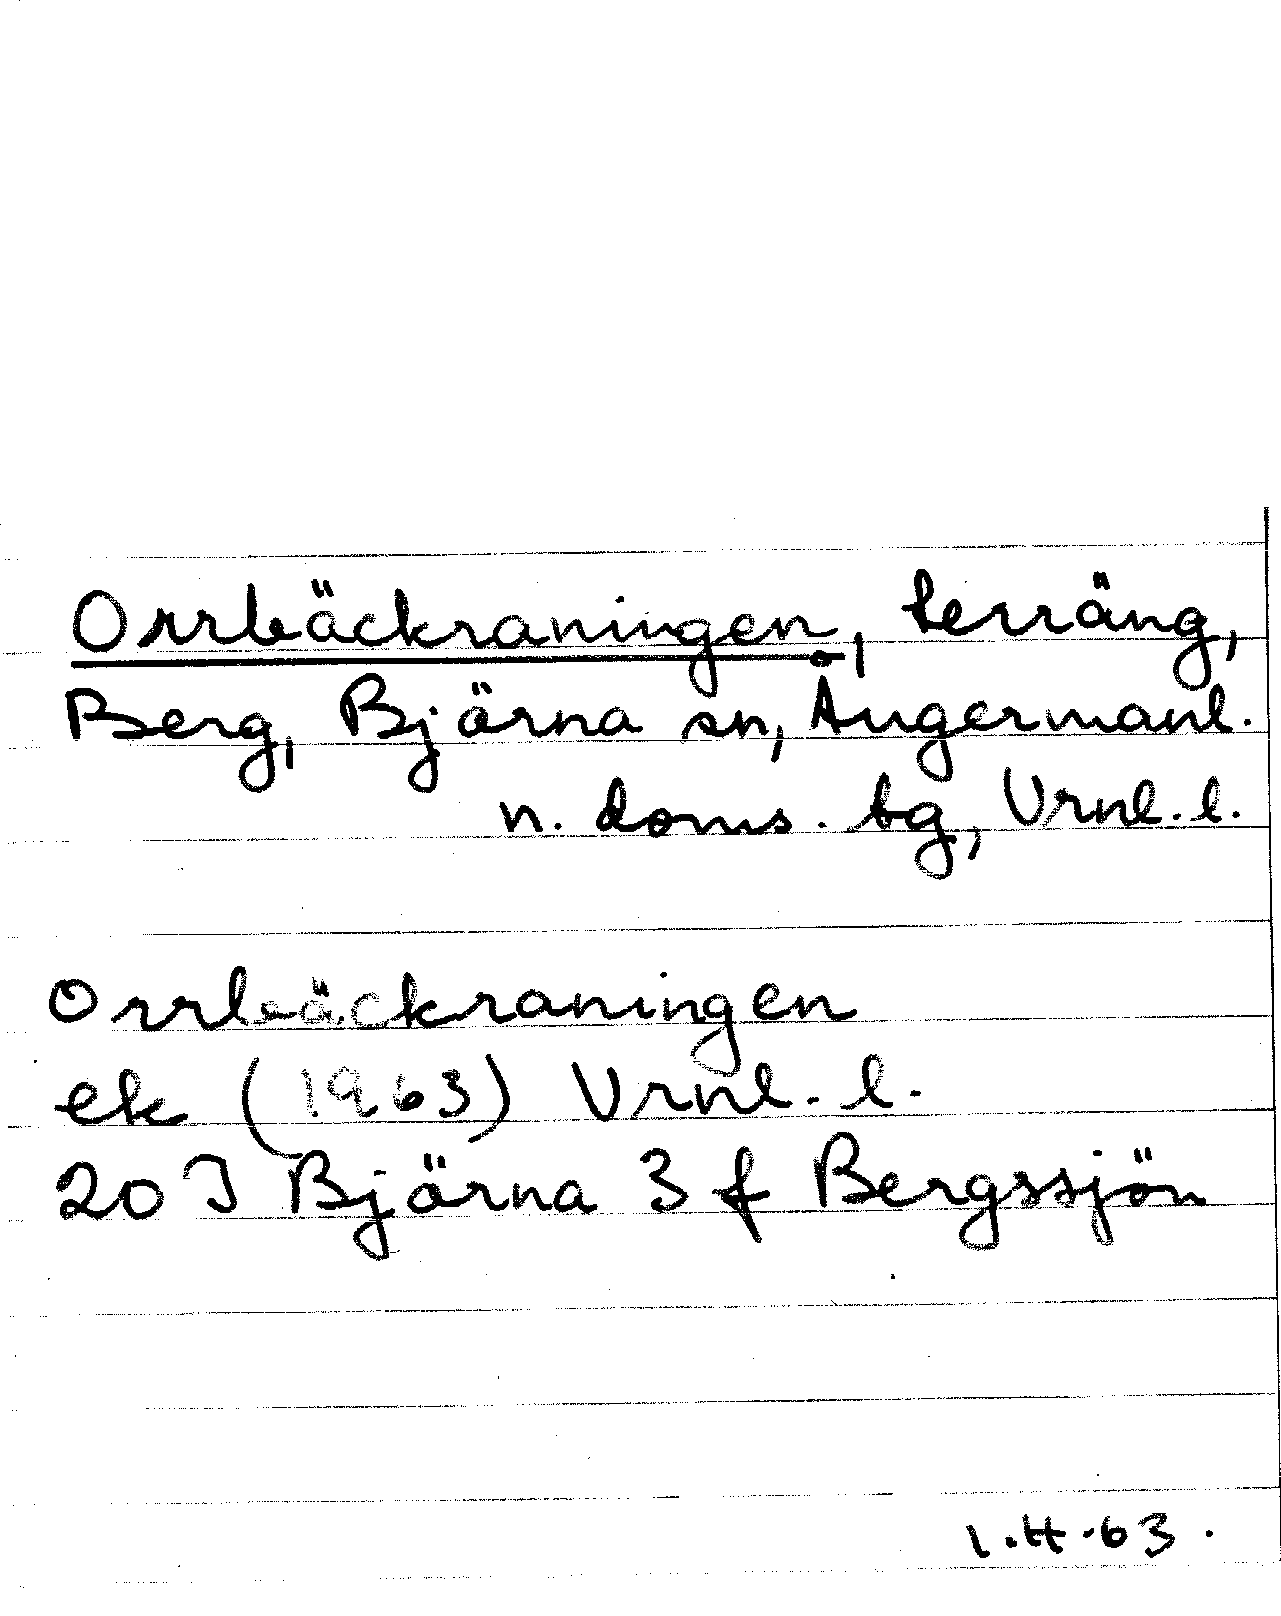 Orrbäckraningen, terräng,
Berg, Björna sn, Ångermanl.
n. doms. bg, Vrnl. l.
Orrbäckraningen
ek (1963) Vrnl. l.
20 J Björna 3 f Bergssjön
I.H.63.